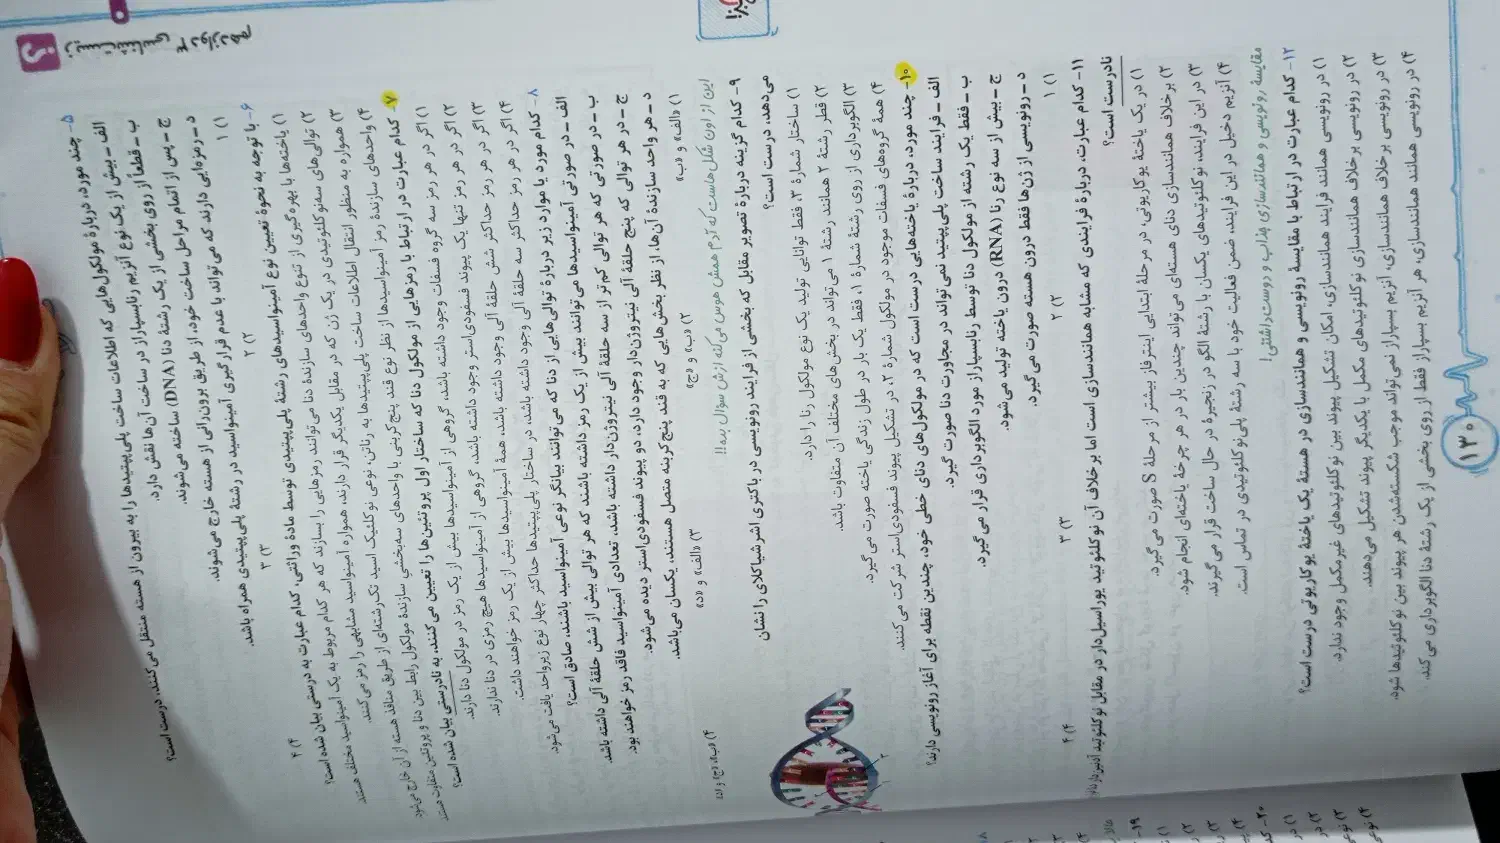 زیست‌شناسی ۳ دوازدهم
۵- چند مورد، دربارهٔ مولکول‌هایی که اطلاعات ساخت پلی‌پپتیدها را به بیرون از هسته منتقل می‌کنند، درست است؟
الف - بیش از یک نوع آنزیم رنابسپاراز در ساخت آن‌ها نقش دارد.
ب - قطعاً از روی بخشی از یک رشتهٔ دنا (DNA) ساخته می‌شوند.
ج - پس از اتمام مراحل ساخت خود، از طریق برون‌رانی از هسته خارج می‌شوند.
د - رمزهایی دارند که می‌تواند با عدم قرارگیری آمینواسید در رشتهٔ پلی‌پپتیدی همراه باشد.
۱) ۱
۲) ۲
۳) ۳
۴) ۴
۶- با توجه به نحوهٔ تعیین نوع آمینواسیدهای رشتهٔ پلی‌پپتیدی توسط مادهٔ وراثتی، کدام عبارت به درستی بیان شده است؟
۱) یاخته‌ها با بهره‌گیری از تنوع واحدهای سازندهٔ دنا می‌توانند رمزهایی را بسازند که هر کدام مربوط به یک آمینواسید مختلف هستند.
۲) توالی‌های سه‌نوکلئوتیدی در یک ژن که در مقابل یکدیگر قرار دارند، همواره آمینواسید مشابهی را رمز می‌کنند.
۳) همواره به منظور انتقال اطلاعات ساخت پلی‌پپتیدها به رناتن، نوعی نوکلئیک اسید تک‌رشته‌ای از طریق منافذ هسته از آن خارج می‌شود.
۴) واحدهای سازندهٔ رمز آمینواسیدها از نظر نوع قند پنج‌کربنی با واحدهای سه‌بخشی سازندهٔ مولکول رابط بین دنا و پروتئین متفاوت هستند.
۷- کدام عبارت در ارتباط با رمزهایی از مولکول دنا که ساختار اول پروتئین‌ها را تعیین می‌کنند، به نادرستی بیان شده است؟
۱) اگر در هر رمز سه گروه فسفات وجود داشته باشد، گروهی از آمینواسیدها بیش از یک رمز در مولکول دنا دارند.
۲) اگر در هر رمز تنها یک پیوند فسفودی‌استر وجود داشته باشد، گروهی از آمینواسیدها هیچ رمزی در دنا ندارند.
۳) اگر در هر رمز حداکثر شش حلقهٔ آلی وجود داشته باشد، همهٔ آمینواسیدها بیش از یک رمز خواهند داشت.
۴) اگر در هر رمز حداکثر سه حلقهٔ آلی وجود داشته باشد، در ساختار پلی‌پپتیدها حداکثر چهار نوع زیرواحد یافت می‌شود.
۸- کدام مورد یا موارد زیر دربارهٔ توالی‌هایی از دنا که می‌توانند بیانگر نوعی آمینواسید باشند، صادق است؟
الف - در صورتی آمینواسیدها می‌توانند بیش از یک رمز داشته باشند که هر توالی بیش از شش حلقهٔ آلی داشته باشد.
ب - در صورتی که هر توالی کم‌تر از سه حلقهٔ آلی نیتروژن‌دار داشته باشد، تعدادی آمینواسید فاقد رمز خواهند بود.
ج - در هر توالی که پنج حلقهٔ آلی نیتروژن‌دار وجود دارد، دو پیوند فسفودی‌استر دیده می‌شود.
د - هر واحد سازندهٔ آن‌ها، از نظر بخش‌هایی که به قند پنج‌کربنه متصل هستند، یکسان می‌باشد.
۱) «الف» و «ب»
۲) «ب» و «ج»
۳) «الف» و «د»
۴) «ب»، «ج» و «د»
این از اون شکل‌هاست که آدم همش هوس می‌کنه ازش سؤال بده!!
۹- کدام گزینه دربارهٔ تصویر مقابل که بخشی از فرایند رونویسی در باکتری اشرشیاکلای را نشان
می‌دهد، درست است؟
۱) ساختار شمارهٔ ۳، فقط توانایی تولید یک نوع مولکول رنا را دارد.
۲) قطر رشتهٔ ۲ همانند رشتهٔ ۱ می‌تواند در بخش‌های مختلف آن متفاوت باشد.
۳) الگوبرداری از روی رشتهٔ شمارهٔ ۱، فقط یک بار در طول زندگی یاخته صورت می‌گیرد.
۴) همهٔ گروه‌های فسفات موجود در مولکول شمارهٔ ۲، در تشکیل پیوند فسفودی‌استر شرکت می‌کنند.
۱۰- چند مورد، دربارهٔ یاخته‌هایی درست است که در مولکول‌های دنای خطی خود، چندین نقطه برای آغاز رونویسی دارند؟
الف - فرایند ساخت پلی‌پپتید نمی‌تواند در مجاورت دنا صورت گیرد.
ب - فقط یک رشته از مولکول دنا توسط رنابسپاراز مورد الگوبرداری قرار می‌گیرد.
ج - بیش از سه نوع رنا (RNA) درون یاخته تولید می‌شود.
د - رونویسی از ژن‌ها فقط درون هسته صورت می‌گیرد.
۱) ۱
۲) ۲
۳) ۳
۴) ۴
۱۱- کدام عبارت، دربارهٔ فرایندی که مشابه همانندسازی است اما برخلاف آن نوکلئوتید یوراسیل‌دار در مقابل نوکلئوتید آدنین‌دار
نادرست است؟
۱) در یک یاختهٔ یوکاریوتی، در مرحلهٔ ابتدایی اینترفاز بیشتر از مرحلهٔ S صورت می‌گیرد.
۲) برخلاف همانندسازی دنای هسته‌ای می‌تواند چندین بار در هر چرخهٔ یاخته‌ای انجام شود.
۳) در این فرایند، نوکلئوتیدهای یکسان با رشتهٔ الگو در زنجیرهٔ در حال ساخت قرار می‌گیرند.
۴) آنزیم دخیل در این فرایند، ضمن فعالیت خود با سه رشتهٔ پلی‌نوکلئوتیدی در تماس است.
مقایسهٔ رونویسی و همانندسازی جذاب و دوست‌داشتنی!
۱۲- کدام عبارت در ارتباط با مقایسهٔ رونویسی و همانندسازی در هستهٔ یک یاختهٔ یوکاریوتی درست است؟
۱) در رونویسی همانند فرایند همانندسازی، امکان تشکیل پیوند بین نوکلئوتیدهای غیرمکمل وجود ندارد.
۲) در رونویسی برخلاف همانندسازی نوکلئوتیدهای مکمل با یکدیگر پیوند تشکیل می‌دهند.
۳) در رونویسی برخلاف همانندسازی، آنزیم بسپاراز نمی‌تواند موجب شکسته‌شدن هر پیوند بین نوکلئوتیدها شود.
۴) در رونویسی همانند همانندسازی، هر آنزیم بسپاراز فقط از روی بخشی از یک رشتهٔ دنا الگوبرداری می‌کند.
۱۳۰